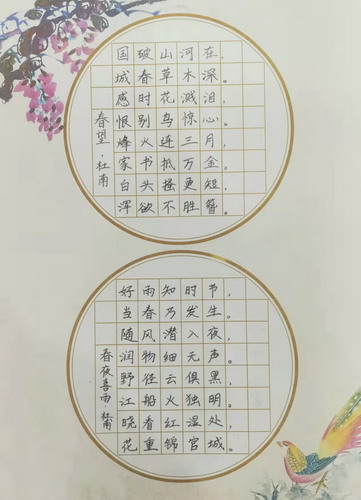 春望·杜甫
国破山河在，
城春草木深。
感时花溅泪，
恨别鸟惊心。
烽火连三月，
家书抵万金。
白头搔更短，
浑欲不胜簪。
春夜喜雨·杜甫
好雨知时节，
当春乃发生。
随风潜入夜，
润物细无声。
野径云俱黑，
江船火独明。
晓看红湿处，
花重锦官城。